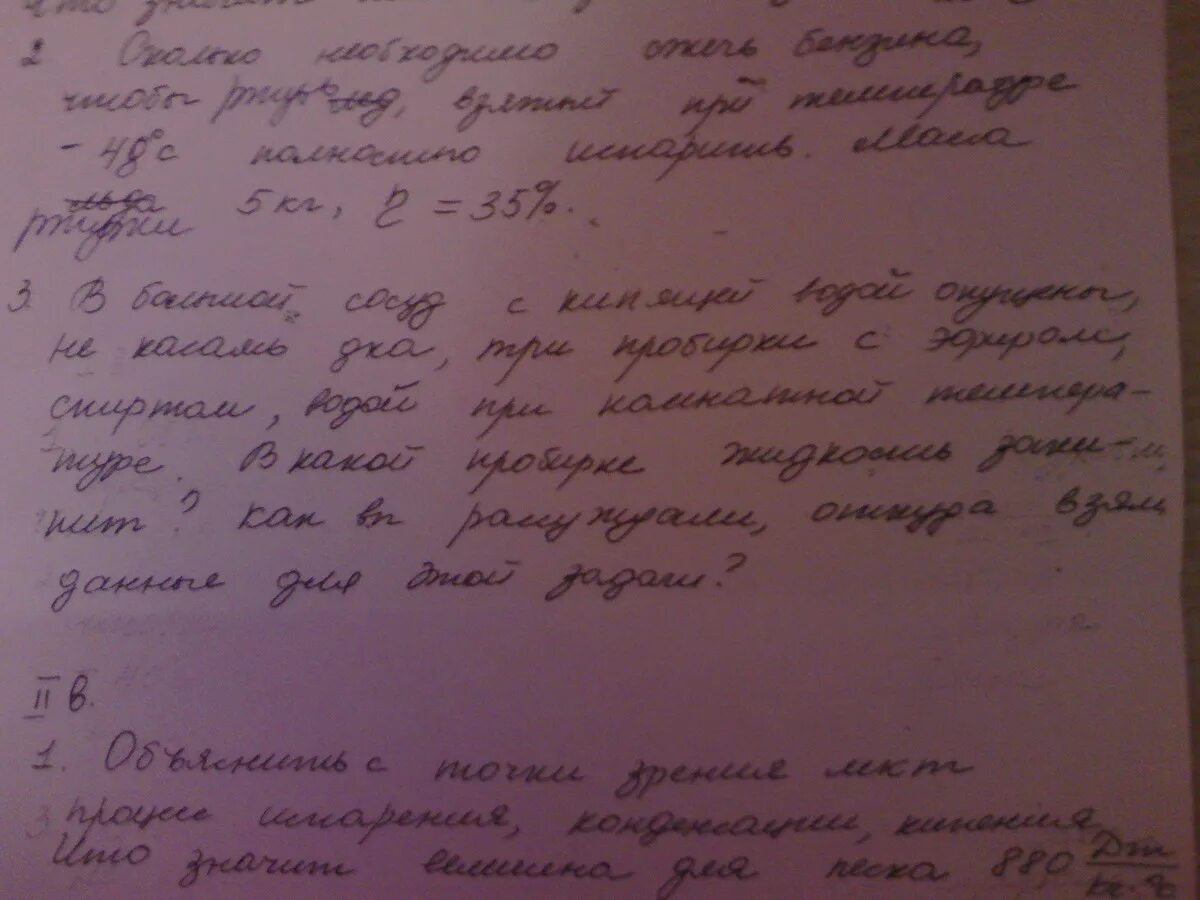 что значит
2 Сколько необходимо сжечь бензина,
чтобы ртуть лед, взятый при температуре
- 48°С полностью испарить. Масса
льда 5 кг, η = 35%.
ртутки
3. В большой сосуд с кипящей водой опущены,
не касаясь дна, три пробирки с эфиром,
спиртом, водой при комнатной темпера-
туре. В какой пробирке жидкость заки-
пит? как вы рассуждали, откуда взяли
данные для этой задачи?
II в.
1. Объяснить с точки зрения мкт
процесс испарения, конденсации, кипения.
Что значит величина для песка 880 Дж/кг·°С